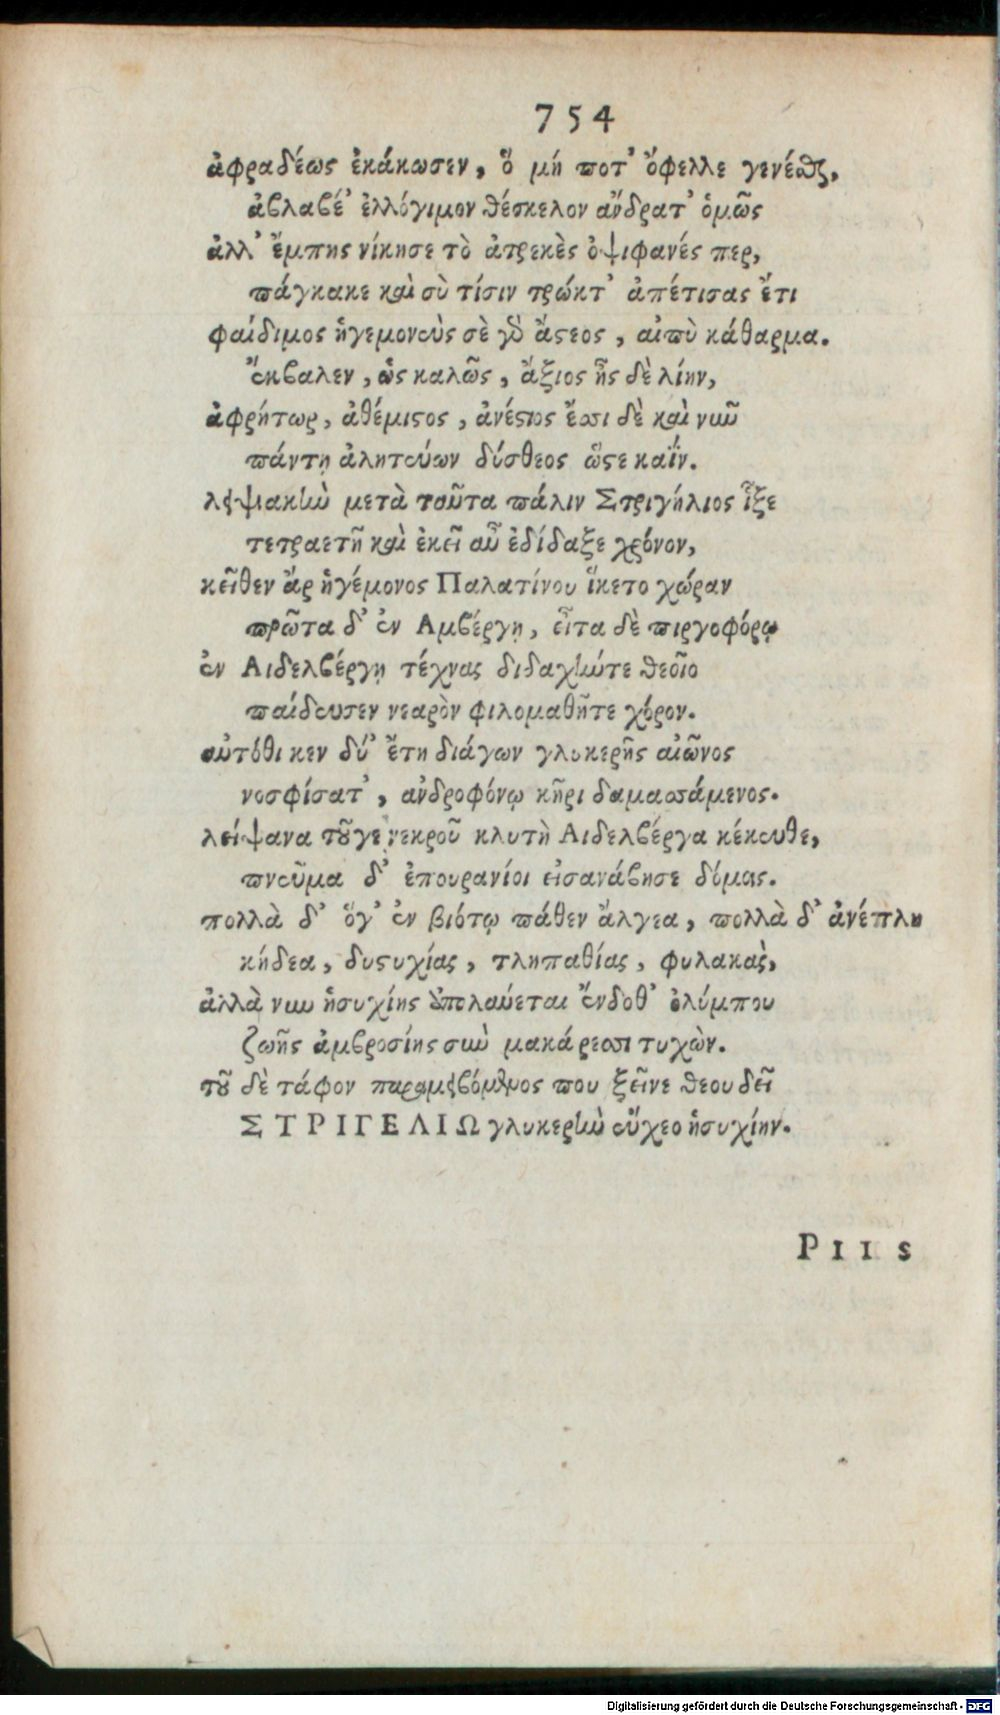 754
ἀφραδέως ἐκάκωσεν, ὅ μή ποτ' ὄφελλε γενέσθαι,
ἀβλαβέ' ἐλλόγιμον θέσκελον ἄνδρατ' ὁμῶς
ἀλλ' ἔμπης νίκησε τὸ ἀτρεκὲς ὀψιφανές περ,
πάγκακε καὶ σὺ τίσιν τρώκτ' ἀπέτισας ἔτι
φαίδιμος ἡγεμονεὺς σὲ γὸ ἄστεος, αἰπὺ κάθαρμα.
ἔκβαλεν, ὡς καλῶς, ἄξιος ἦς δὲ λίην,
ἀφρήτωρ, ἀθέμιστος, ἀνέστιος ἔσσι δὲ καὶ νῦν
πάντῃ ἀλητεύων δύσθεος ὥστε καΐν.
λειψιακὴν μετὰ τοῦτα πάλιν Στριγήλιος ἷξε
τετραετῆ καὶ ἐκεῖ αὖ ἐδίδαξε χρόνον,
κεῖθεν ἄρ ἡγέμονος Παλατίνου ἵκετο χώραν
πρῶτα δ' ἐν Αμβέργῃ, εἶτα δὲ πιργοφόρῳ
ἐν Αιδελβέργῃ τέχνας διδαχήν τε θεοῖο
παίδευσεν νεαρὸν φιλομαθῆτε χόρον.
αὐτόθι κεν δύ' ἔτη διάγων γλυκερῆς αἰῶνος
νοσφίσατ', ἀνδροφόνῳ κῆρι δαμασσάμενος.
λείψανα τοῦγε νεκροῦ κλυτὴ Αιδελβέργα κέκευθε,
πνεῦμα δ' ἐπουρανίοι εἰσανάβησε δόμοις.
πολλὰ δ' ὅγ' ἐν βιότῳ πάθεν ἄλγεα, πολλὰ δ' ἀνέπλη
κήδεα, δυστυχίας, τληπαθίας, φυλακάς,
ἀλλὰ νῦν ἡσυχίης ἀπολαύεται ἔνδοθ' ὀλύμπου
ζωῆς ἀμβροσίης σὺν μακάρεσσι τυχὼν.
τοῦ δὲ τάφον παραμειβόμενος που ξεῖνε θεουδεῖ
ΣΤΡΙΓΕΛΙΩ γλυκερὴν εὔχεο ἡσυχίην.
PIIS
Digitalisierung gefördert durch die Deutsche Forschungsgemeinschaft - DFG